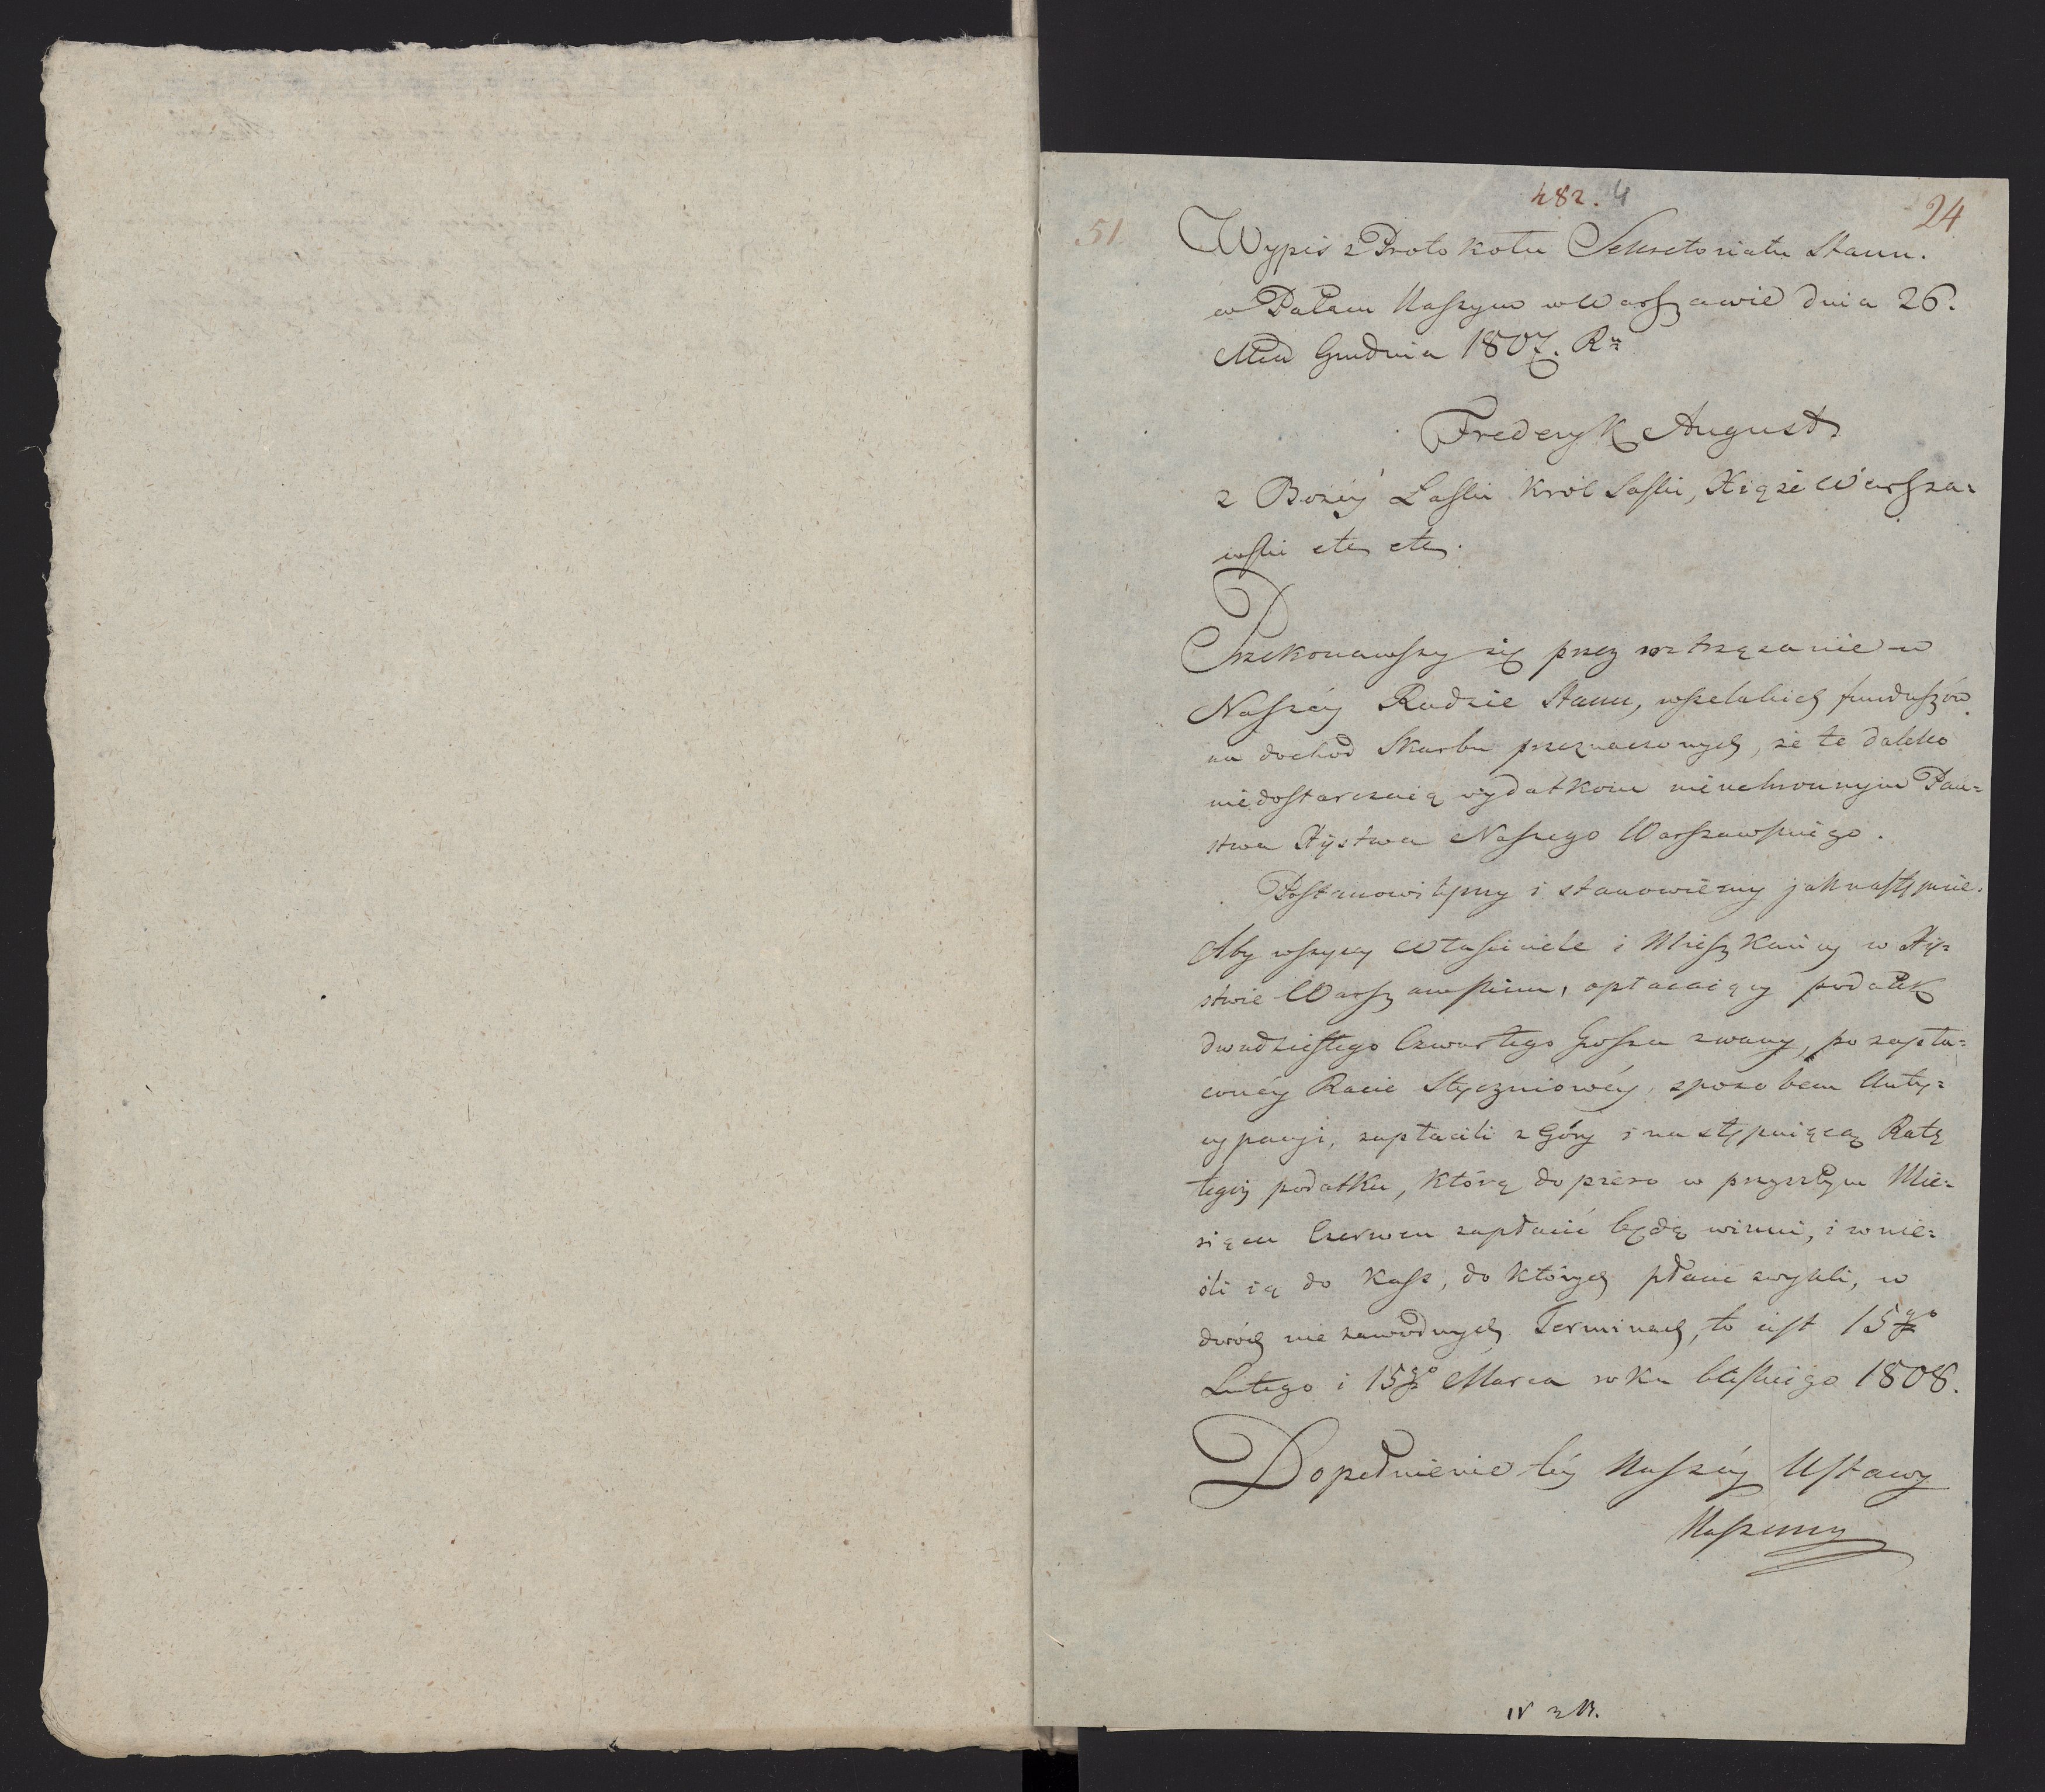 482. 4
24
51
Wypis z Protokołu Sekretariatu Stanu.
w Pałacu Naszym w Warszawie dnia 26.
Mca Grudnia 1807. Ru
Frederyk August
z Bożéy Łaski Król Saski, Xiąże Warsza=
wski etc etc.
Przekonawszy się przez roztrząsanie w
Naszéy Radzie Stanu, wszelakich funduszów
na dochód Skarbu przeznaczonych, że te daleko
niedostarczaią wydatkom nieuchronnym Pań=
stwa Xięstwa Naszego Warszawskiego.
Postanowiliśmy i stanowiemy jak następuie.
Aby wszyscy Właściciele i Mieszkańcy w Xię=
stwie Warszawskim, opłacaiący podatek
dwudziestego Czwartego Grosza zwany, po zapła=
conéy Racie Styczniowéy, sposobem Anty=
cypacyi, zapłacili z Góry i następuiącą Ratę
tegoż podatku, którą dopiero w przyszłym Mie=
siącu Czerwcu zapłacić będą winni, i wnie=
śli ią do Kass, do których płacić zwykli, w
dwóch niezawodnych Terminach, to iest 15go
Lutego i 15go Marca roku 1808.
Dopełnienie téy Naszéy Ustawy
Naszemu